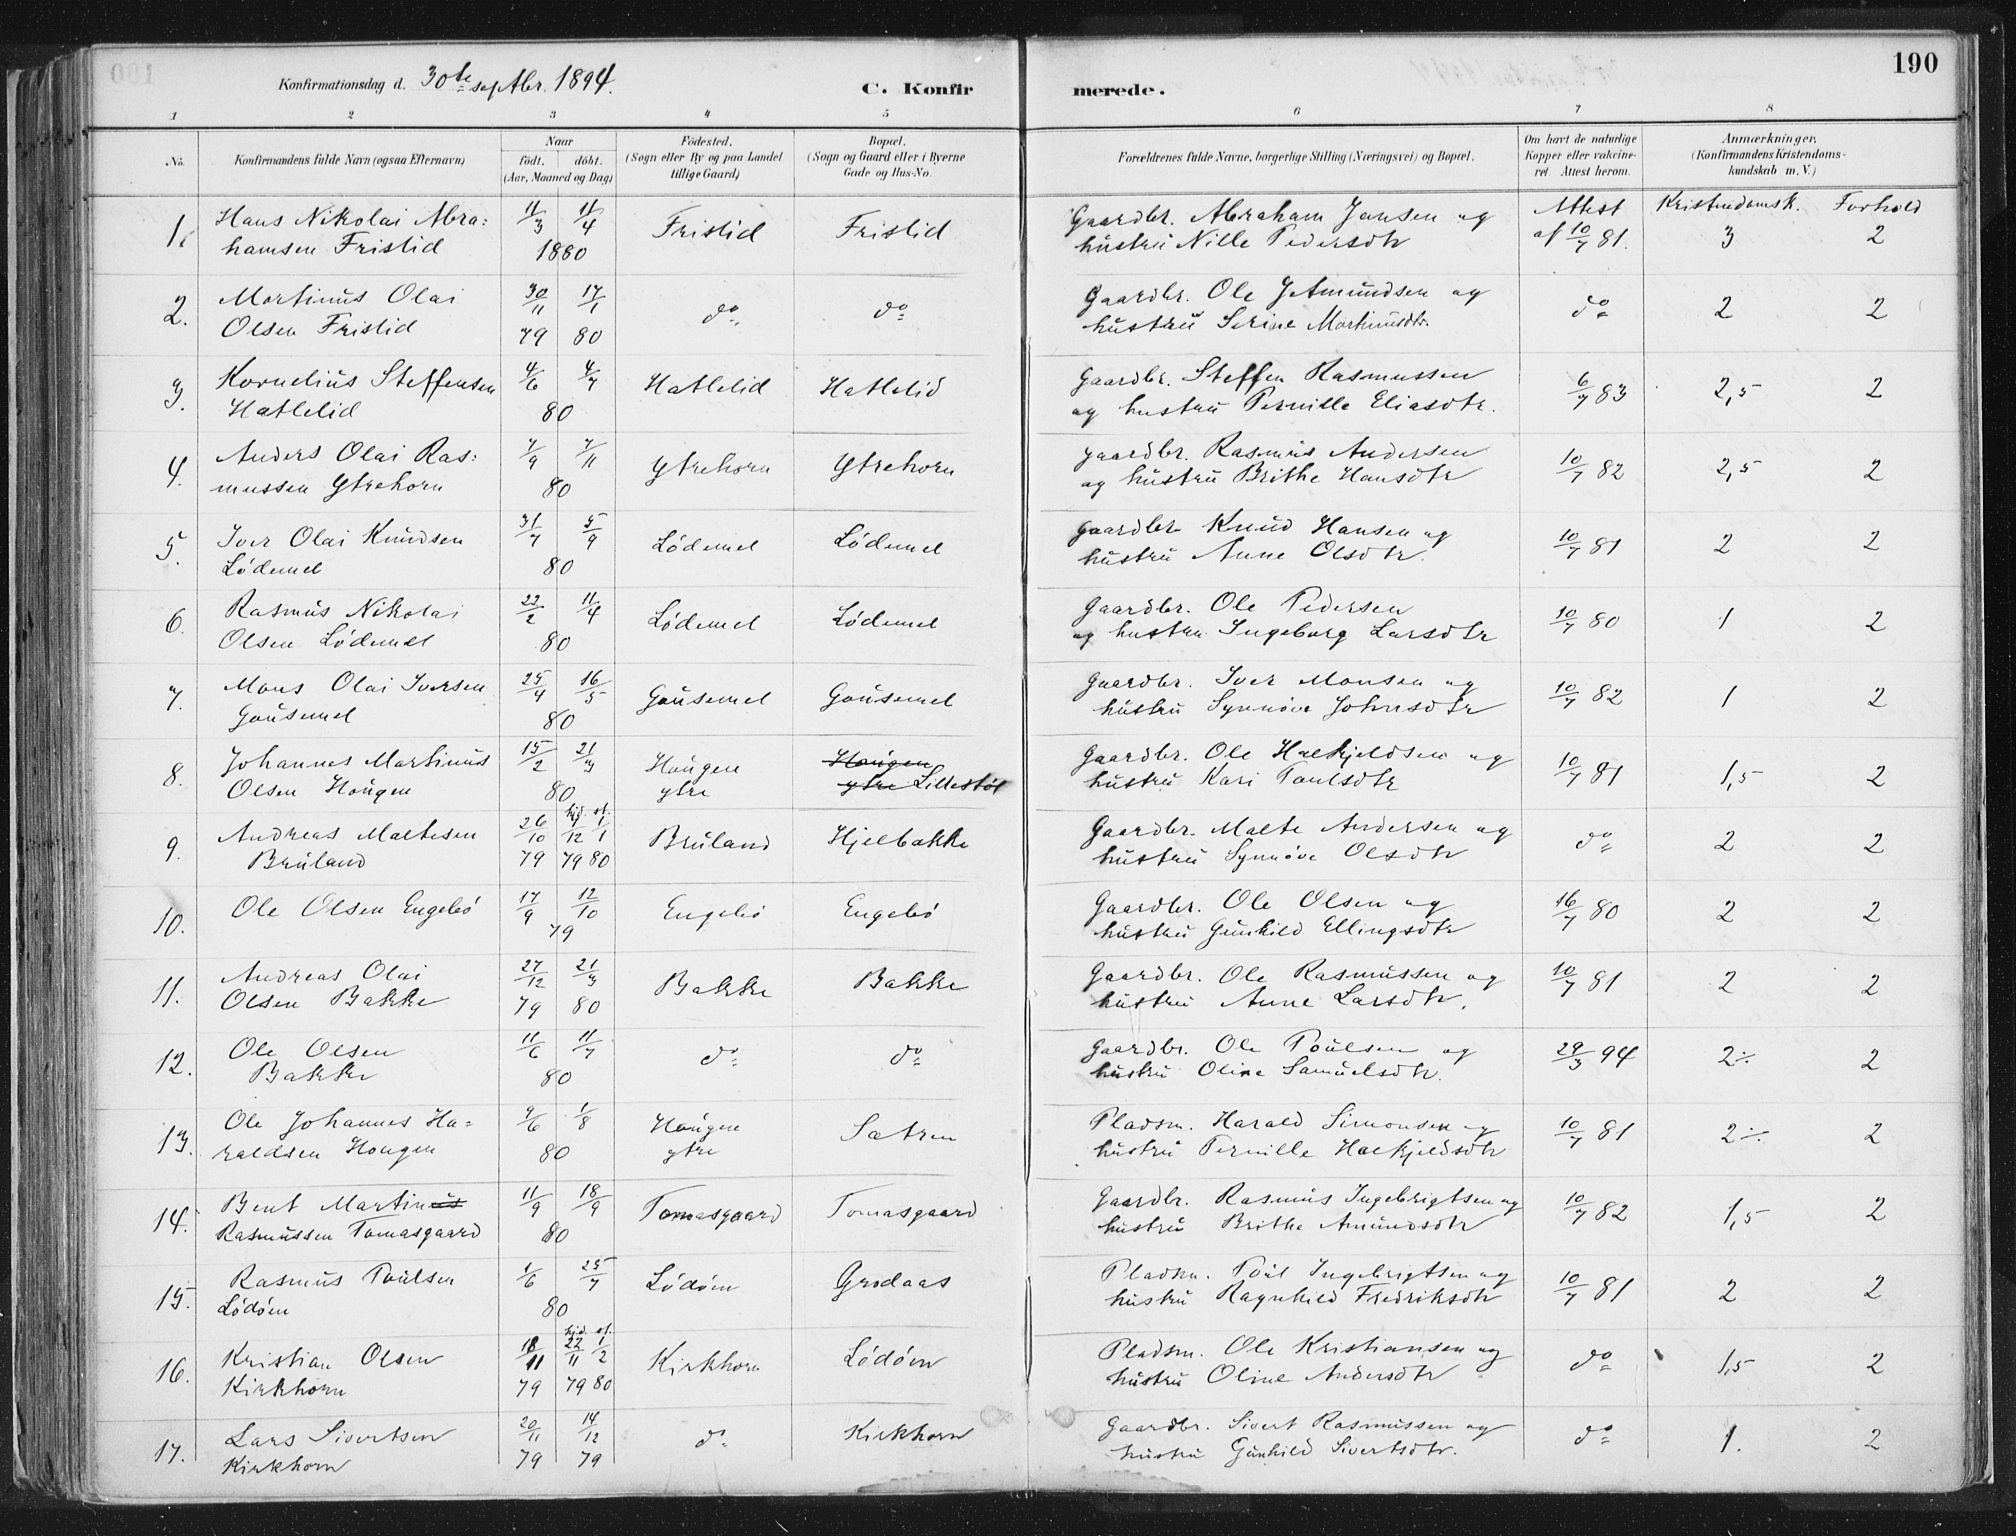 190
Konfirmationsdag d. 30te septbr. 1894.
C. Konfirmerede.
1 2 3 4 5 6 7 8
No.
Konfirmandens fulde Navn (ogsaa Efternavn)
Naar
født. døbt.
(Aar, Maaned og Dag)
Fødested.
(Sogn eller By og paa Landet
tillige Gaard)
Bopæl.
(Sogn og Gaard eller i Byerne
Gade og Hus-No.
Forældrenes fulde Navne, borgerlige Stilling (Næringsvei) og Bopæl.
Om havt de naturlige
Kopper eller vakcine-
ret. Attest herom.
Anmærkninger.
(Konfirmandens Kristendoms-
kundskab m. V.)
1. Hans Nikolai Abra: 11/3 11/4 Fristid Fristid Gaardbr. Abraham Jansen og Attest Kristendomsk. Forhold
hamsen Fristid 1880 hustru Nille Pedersdtr af 10/7 81. 3 2
2. Martinus Olai 30/11 17/1 do do Gaardbr. Ole J. Amundsen og do 2 2
Olsen Fristid 79 80 hustru Serine Martinusdtr.
3. Kornelius Steffensen 4/6 4/7 Hatlelid Hatlelid Gaardbr. Steffen Rasmussen 6/7 83 2,5 2
Hatlelid 80 og hustru Pernille Eliasdtr.
4. Anders Olai Ras: 7/9 7/11 Ytrehorn Ytrehorn gaardbr. Rasmus Andersen 10/7 82 2,5 2
mussen Ytrehorn 80 og hustru Brithe Hansdtr
5. Iver Olai Knudsen 31/7 5/9 Lødemel Lødemel gaardbr Knud Hansen og 10/7 81 2 2
Lødemel 80 hustru Anne Olsdtr.
6. Rasmus Nikolai 22/2 11/4 Lødemel Lødemel Gaardbr. Ole Pedersen 10/7 80 1 2
Olsen Lødemel 80 og hustru Ingeborg Larsdtr
7. Mons Olai Iversen 25/4 16/5 Gausemel Gausemel Gaardbr. Iver Monsen og 10/7 82 1 2
Gausemel 80 hustru Synnøve Johnsdtr
8. Johannes Martinus 15/2 21/3 Haugen Haugen Gaardbr. Ole Halkjeldsen og 10/7 81 1,5 2
Olsen Haugen 80 ytre ytre Lillestøl hustru Kari Paulsdtr
9. Andreas Maltesen 26/10 hjd. /12 st. 1/1 Bruland Hjelbakke Gaardbr. Malte Andersen og do 2 2
Bruland 79 79 80 hustru Synnøve Olsdtr
10. Ole Olsen Engebø 17/9 12/10 Engebø Engebø Gaardbr. Ole Olsen og 16/7 80 2 2
79 hustru Gunhild Ellingsdtr
11. Andreas Olai 27/12 21/3 Bakke Bakke Gaardbr. Ole Rasmussen og 10/7 81 2 2
Olsen Bakke 79 80 hustru Anne Larsdtr.
12. Ole Olsen 11/6 11/7 do do Gaardbr. Ole Poulsen og 29/3 94 2÷ 2
Bakke 80 hustru Oline Samuelsdtr.
13. Ole Johannes Ha= 9/6 1/8 Haugen Sætren Pladsm. Harald Simonsen og 10/7 81 2÷ 2
raldsen Hougen 80 ytre hustru Pernille Halkjeldsdtr
14. Bent Martinus 11/9 18/9 Tomasgaard Tomasgaard Gaardbr. Rasmus Ingebrigtsen og 10/7 82 1,5 2
Rasmussen Tomasgaard 80 hustru Brithe Amundsdtr
15. Rasmus Poulsen 1/6 25/7 Lødøen Grodaas Pladsm. Poul Ingebrigtsen og 10/7 81 2 2
Lødøen 80 hustru Ragnhild Fredriksdtr
16. Kristian Olsen 18/11 hjd. 22/11 st. 1/2 Kirkhorn Lødøen Pladsm. Ole Kristiansen og do 1,5 2
Kirkhorn 79 79 80 hustru Oline Andersdtr
17. Lars Sivertsen 20/11 14/12 do Kirkhorn Gaardbr. Sivert Rasmussen og do 1. 2
Kirkhorn 79 79 hustru Gunhild Sivertsdtr.